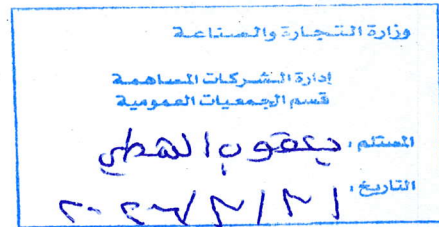 وزارة التجارة والصناعة
إدارة الشركات المساهمة
قسم الجمعيات العمومية
المستلم: يعقوب
التاريخ: